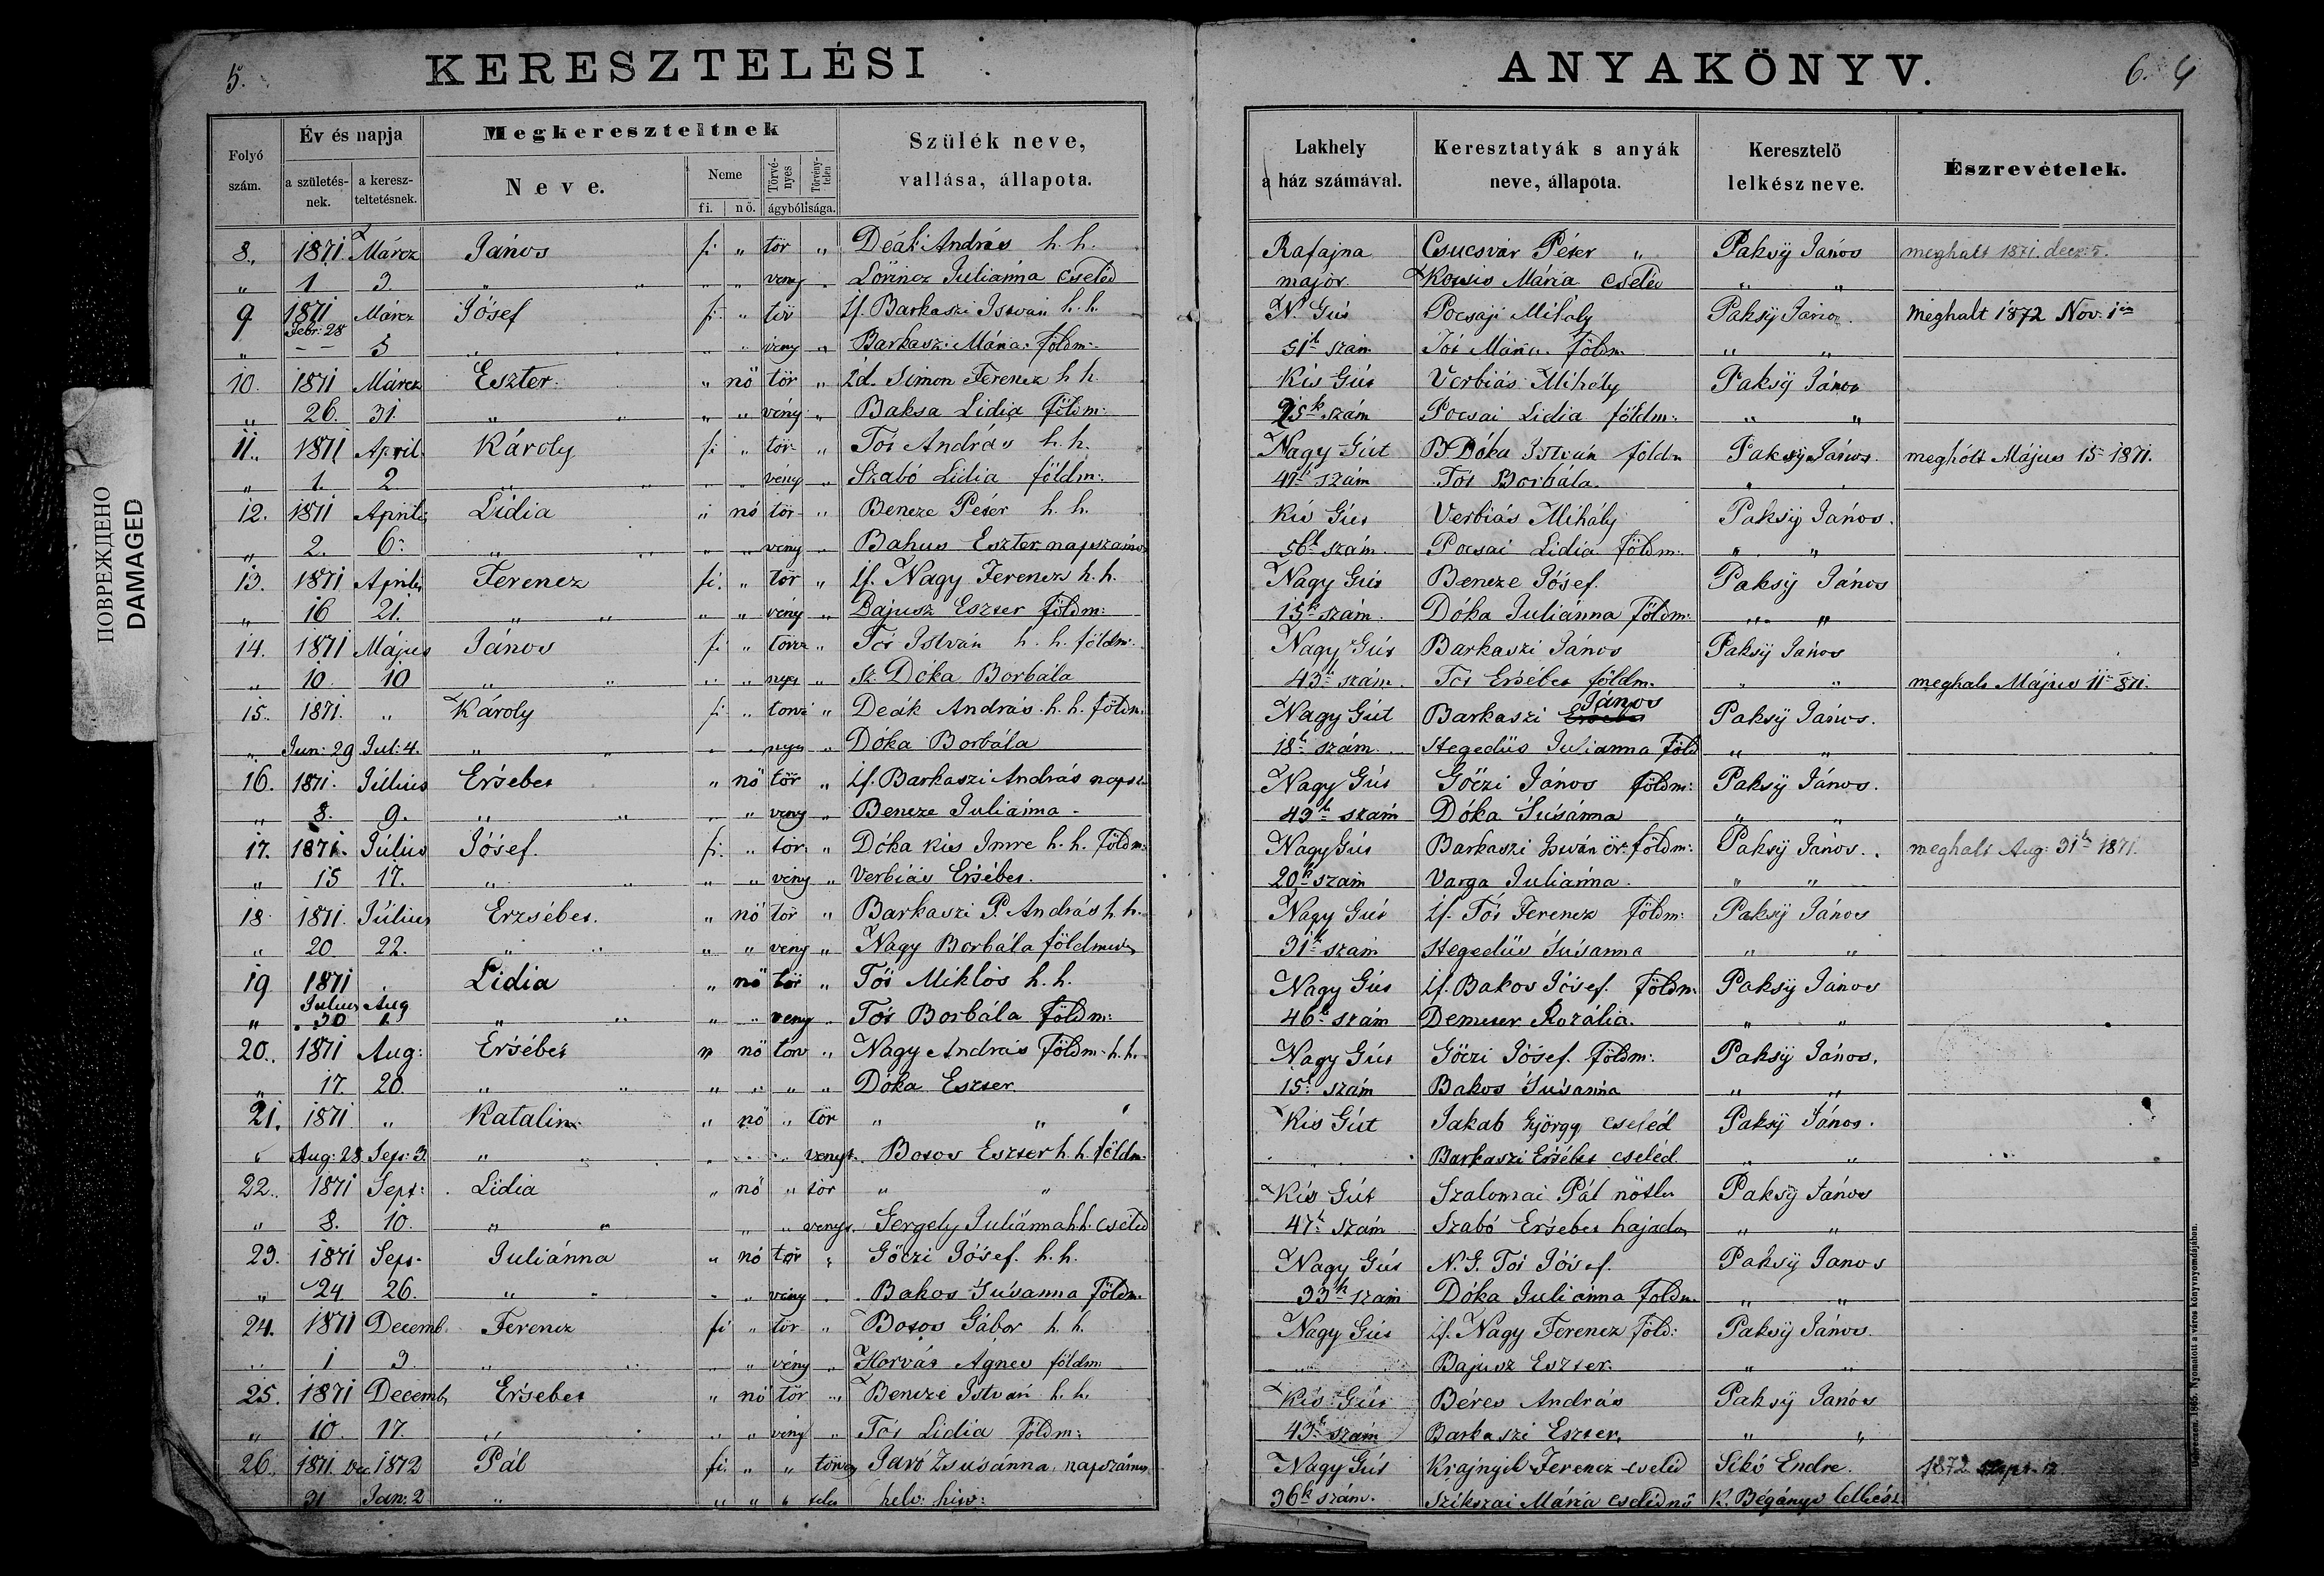 5. KERESZTELÉSI ANYAKÖNYV. 6. 4
Folyó szám. | Év és napja a születésnek. | a keresztteltetésnek. | Megkereszteltnek Neve. | Neme fi. | nő. | Törvényes | Törvénytelen ágybólisága. | Szülék neve, vallása, állapota. | Lakhely a ház számával. | Keresztatyák s anyák neve, állapota. | Keresztelő lelkész neve. | Észrevételek.
8. 1871 Márcz János fi „ tör „ Deák András h. h. Rafajna Csucsvár Péter „ Paksÿ János meghalt 1871. decz: 5.
„ 1 3. „ „ „ „ veny „ Lőrincz Julianna cseléd major Kocsis Mária cseléd „ „
9 1871 Márcz Jósef fi. „ tör if. Barkaszi István h. h. N. Gút Pocsaji Mihály Paksÿ János. Meghalt 1872 Nov. 1én
„ Febr: 28 5 „ „ „ „ veny „ Barkaszi Mária földm: 51k szám Tót Mária földm „ „
10. 1871 Márcz Eszter. „ nö tör „ id. Simon Ferencz h h. Kis Gút Verbiás Mihály Paksÿ János
„ 26. 31. „ „ „ „ vény „ Baksa Lidia földm: 25k szám Pocsai Lidia földm: „ „
11. 1871 April. Károly fi „ tör „ Tót András h. h. Nagy Gút B Dóka István földm Paksÿ János. meghólt Május 15 1871.
„ 1. 2 „ „ „ „ vény „ Szabó Lidia földm: 47k szám Tót Borbála.
12. 1871 April: Lidia „ nó tör „ Bencze Péter h. h. Kis Gút Verbiás Mihály Paksÿ János.
„ 2. 6. „ „ „ „ veny „ Bahus Eszter napszámos 56k szám. Pocsai Lidia földm: „ „
13. 1871 April: Ferencz fi. „ tör „ if. Nagy Ferencz h. h. Nagy Gút Bencze Jósef. Paksÿ János
„ 16 21. „ „ „ „ vény „ Bajusz Eszter földm: 15k szám. Dóka Juliánna földm: „ „
14. 1871 Május János fi „ törve „ Tót István h. h. földm: Nagy Gút Barkaszi János Paksÿ János
„ 10. 10 „ „ „ „ nyes „ Sz. Dóka Borbála 43k szám. Tót Ersébet földm. „ „ meghalt Május 11 871.
15. 1871. „ Károly fi „ törve „ Deák András h. h. földm. Nagy Gút Barkaszi János Paksÿ János.
„ Jun: 29 Jul: 4. „ „ „ „ nyes „ Dóka Borbála 18k szám. Hegedüs Julianna föld „ „
16. 1871. Július Ersébet „ nö tör „ if. Barkaszi András napsz Nagy Gút Góczi János földm: Paksÿ János.
„ 8. 9. „ „ „ „ veny „ Bencze Julianna 43k szám Dóka Susánna „ „
17. 1871. Július Jósef. fi. „ tör. „ Dóka kis Imre h. h. földm: Nagy Gút Barkaszi István ör. földm: Paksÿ János. meghalt Aug: 31k 1871.
„ 15 17. „ „ „ „ veny „ Verbiás Ersébet. 20k szám Varga Julianna. „ „
18 1871. Július Erzsébet. „ nö tör „ Barkaszi P. András h. h. Nagy Gút if. Tót Ferencz földm: Paksÿ János
„ 20 22. „ „ „ „ veny „ Nagy Borbála földmives 31k szám Hegedüs Susanna „ „
19 1871 Lidia „ nö tör „ Tót Miklós h. h. Nagy Gút if. Bakos Jósef. földm. Paksÿ János
„ Julius 30 Aug 1. „ „ „ „ veny „ Tót Borbála földm: 46k szám Demeter Rozália. „ „
20. 1871 Aug: Ersébet „ nö törv „ Nagy András földm. h. h. Nagy Gút Góczi Jósef. földm: Paksÿ János.
„ 17. 20. „ „ „ „ „ „ Dóka Eszter 15k szám Bakos Susanna „ „
21. 1871. „ Katalin „ nö „ tör „ „ Kis Gút Jakab György cseléd Paksÿ János.
„ Aug: 28 Sep: 3. „ „ „ „ „ venyt. Botos Eszter h. h. földm. Barkaszi Ersébet cseléd. „ „
22. 1871 Sept: Lidia „ nó „ tör „ „ Kis Gút Szalonnai Pál nötlen Paksÿ János
„ 8. 10. „ „ „ „ venyt. Gergely Juliánna h.h. cseléd 47k szám Szabó Ersébet hajadon „ „
23. 1871 Sept. Juliánna „ nó tör „ Góczi Jósef. h. h. Nagy Gút N. G. Tót Jósef. Paksÿ Janos
„ 24 26. „ „ „ „ vény . Bakos Susanna földm. 33k szám Dóka Juliánna földm. „ „
24. 1871 Decemb. Ferencz fi „ tör „ Botos Gábor h. h. Nagy Gút if. Nagy Ferencz föld: Paksÿ János.
„ 1 3 „ „ „ „ vény „ Horvát Agnes földm: „ Bajusz Eszter. „ „
25. 1871 Decemb, Ersebet „ nö tör „ Bencze István h. h. Kis Gút Béres András Paksÿ János
„ 10. 17. „ „ „ „ vény „ Tót Lidia földm: 43k szám Barkaszi Eszter. „ „
26. 1871. Dec 1872 Pál fi. „ „ törvény Jaró Zsusánna napszámos Nagy Gút Krajnyik Ferencz cseléd Sikó Endre. 1872 Sept. 12
31 Jan: 2 „ „ „ „ telen helv: hitv: 36k szám. Szikszai Mária cselédnö K. Bégányi lelkész.
ПОВРЕЖДЕНО
DAMAGED
Debreczen. 1865. Nyomatott a város könyvnyomdájában.